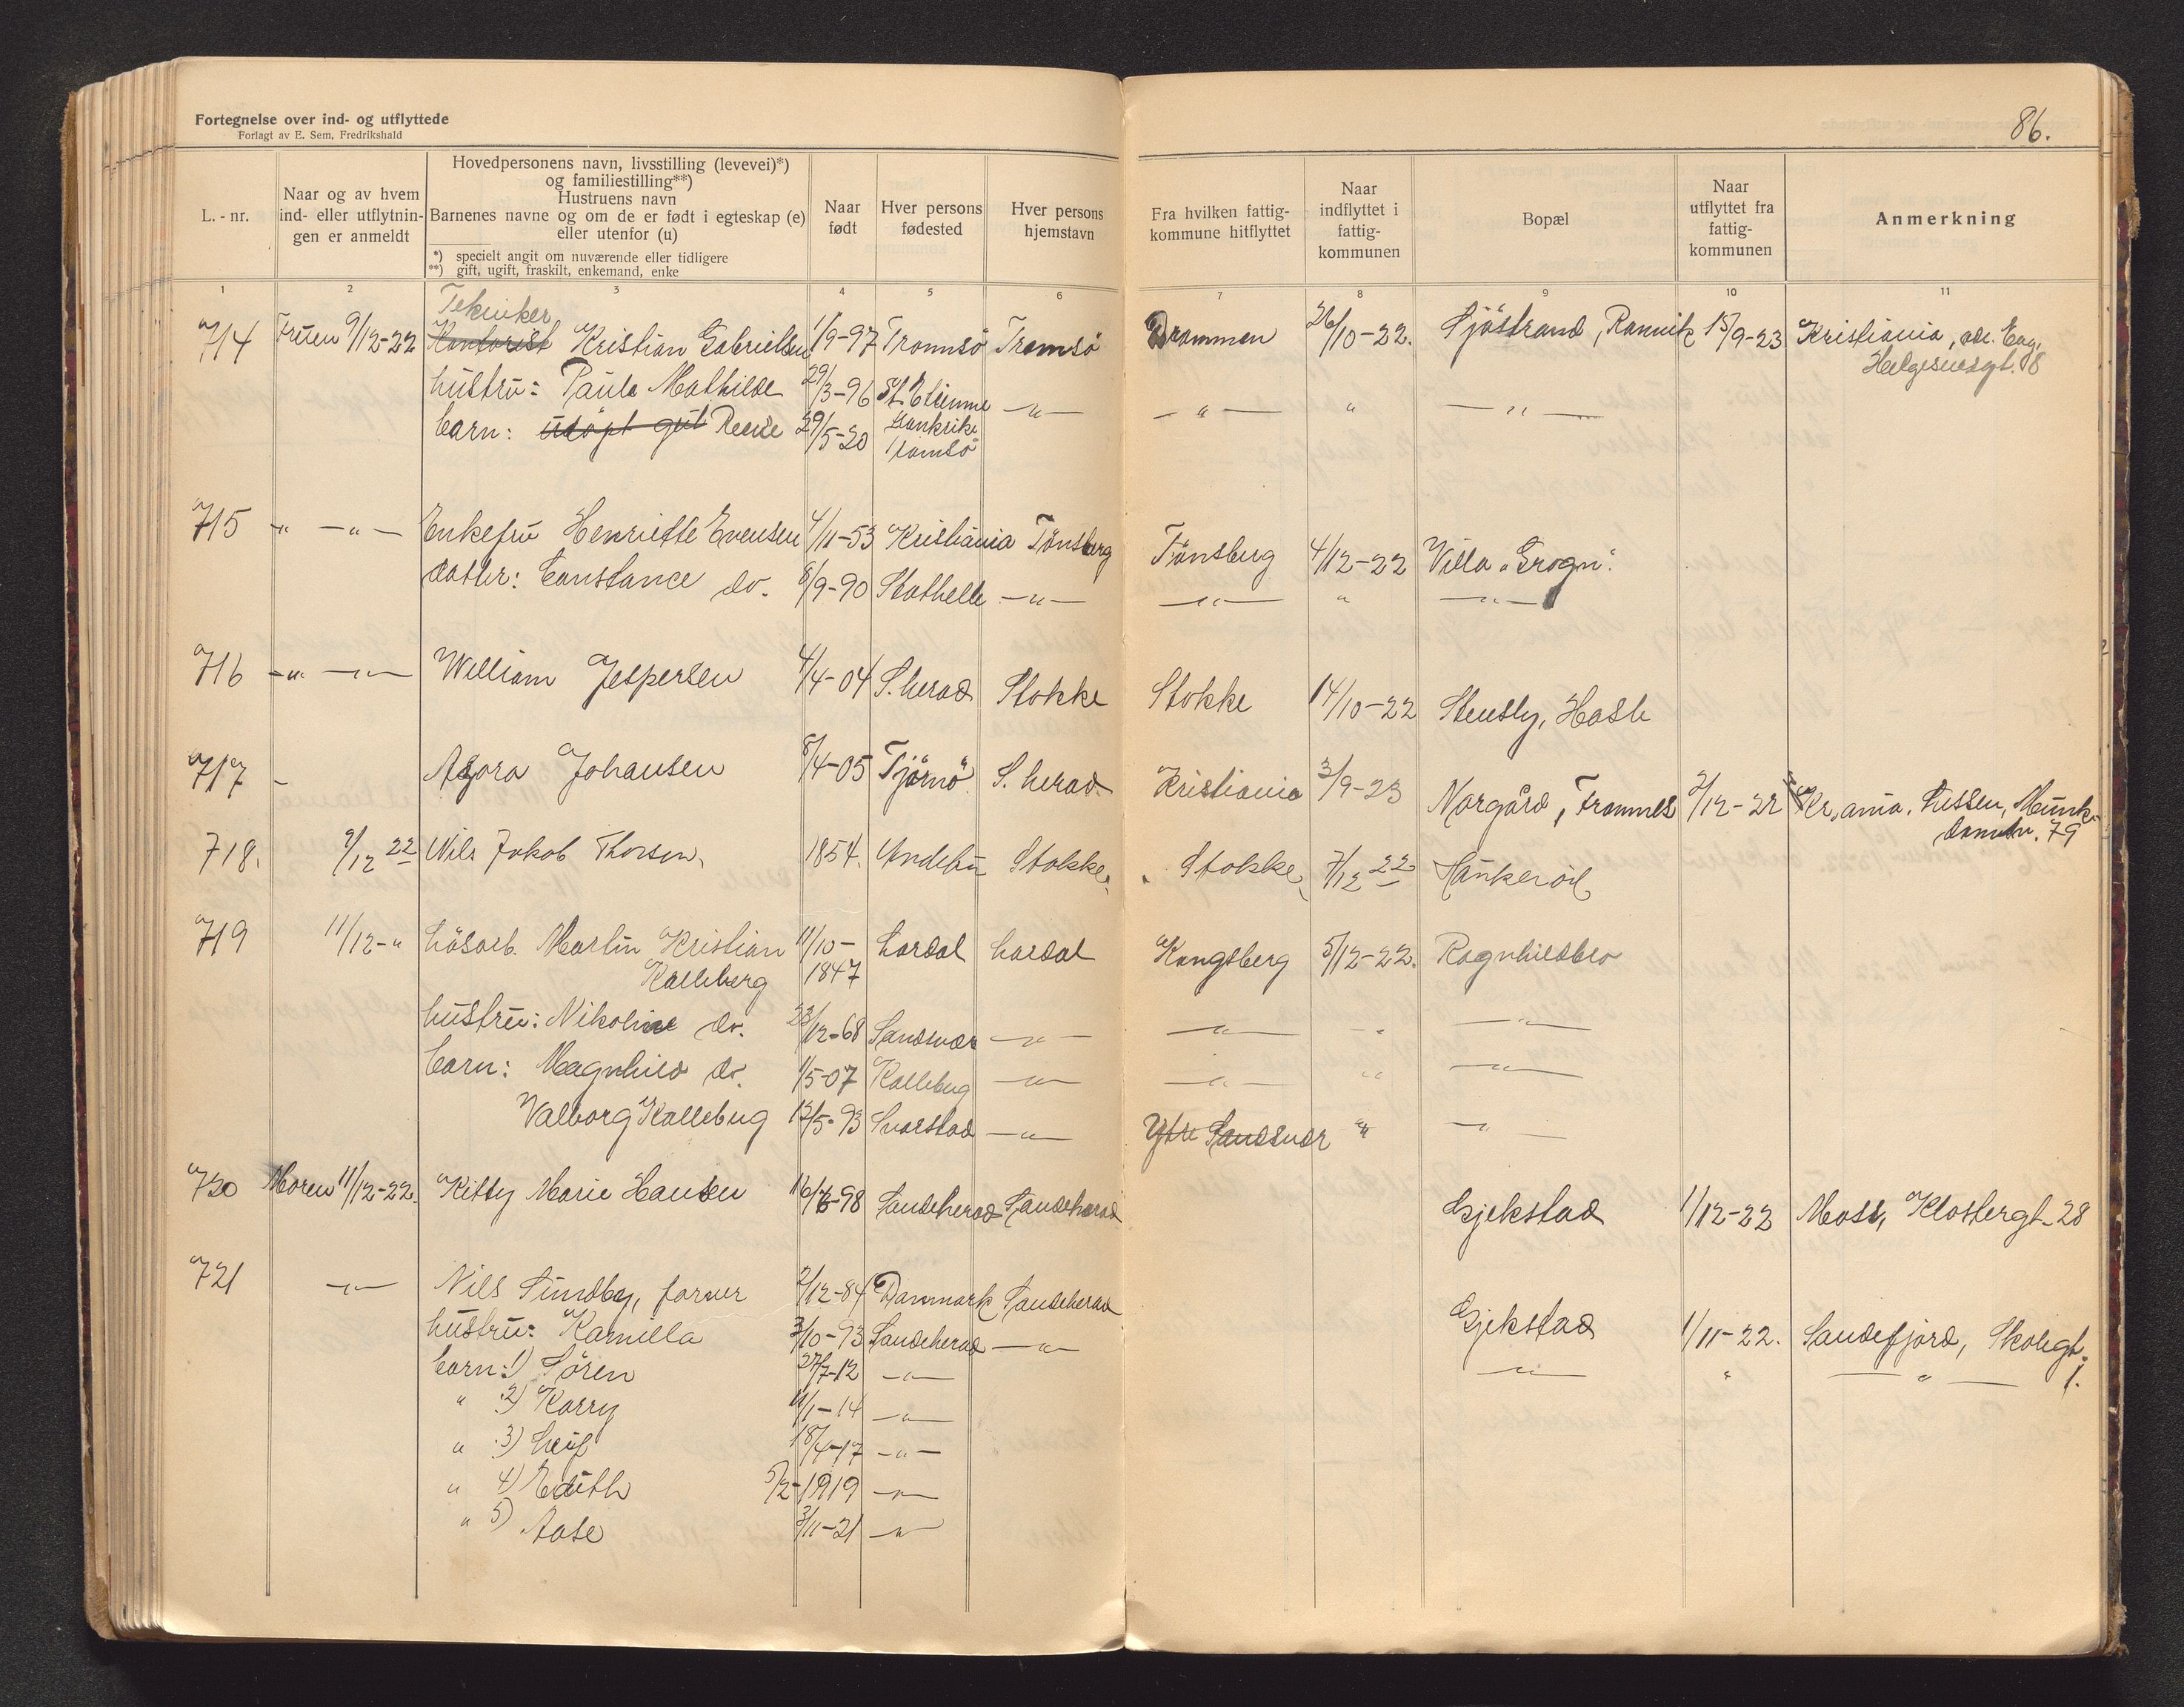 Fortegnelse over ind- og utflyttede
Forlagt av E. Sem, Fredrikshald
86.
L. - nr.
Naar og av hvem ind- eller utflytnin- gen er anmeldt
Hovedpersonens navn, livsstilling (levevei)*)
og familiestilling**)
Hustruens navn
Barnenes navne og om de er født i egteskap (e)
eller utenfor (u)
*) specielt angit om nuværende eller tidligere
**) gift, ugift, fraskilt, enkemand, enke
Naar født
Hver persons fødested
Hver persons hjemstavn
Fra hvilken fattig- kommune hitflyttet
Naar indflyttet i fattig- kommunen
Bopæl
Naar utflyttet fra fattig- kommunen
Anmerkning
1 2 3 4 5 6 7 8 9 10 11
Tekniker
714 Fruen 9/12-22 Kontorist Kristian Gabrielsen 1/9-97 Tromsö Tromsö Drammen 26/10-22. Sjöstrand, Ranvik 15/9-23 Kristiania, adr. Eug.
Helgesensgt. 18
hustru: Paula Mathilde 29/3-96 St. Etienne -"- -"- " -"-
Frankrike
barn: udöpt gut Reene 29/5-20 Tromsö
715 " -"- Enkefru Henriette Evensen 4/11-53 Kristiania Tönsberg Tönsberg 4/12-22 Villa "Grogn".
datter: Constance do. 8/9-90 Stathelle -"- -"- " -"-
716 -"- -"- William Jespersen 4/4-04 S.herad Stokke Stokke 14/10-22 Stensby, Hasle
717 - Agora Johansen 8/4-05 Tjömö S. herad. Kristiania 3/9-23 Norgård, Framnes 2/12-22 Kr.ania. Tussen, Munke-
damsv. 79
718. 9/12 22 Nils Jakob Thorsen, 1854. Andebu Stokke, Stokke, 7/12 22 Haukeröd
719 11/12-" Lösarb. Martin Kristian 11/10- Lardal Lardal Kongsberg 5/12-22. Ragnhildsbro
Kalleberg 1847
hustru: Nikoline do. 23/12-68 Sandsvær -"- -"- " -"-
barn: Magnhild do. 1/5-07 Kalleberg -"- -"- " -"-
Valborg Kalleberg 12/5-93 Svarstad -"- Ytre Sandsvær " -"-
720 Moren 11/12-22. Kitty Marie Hansen 16/6-98 Sandeherad Sandeherad Gjekstad 1/12-22 Moss, Klostergt. 28
721 -"- Nils Sundby, farver 2/12-84 Danmark Sandeherad Gjekstad 1/11-22. Sandefjord, Skolegt.
1.
hustru: Kamilla 3/10-93 Sandeherad -"- -"- " -"-
barn: 1) Sören 27/7-12 -"-
" 2) Karry 11/1-14 -"-
" 3) Leif 18/4-17 -"-
" 4) Edith 5/2-1919 -"-
" 5) Aase 3/11-21 -"-